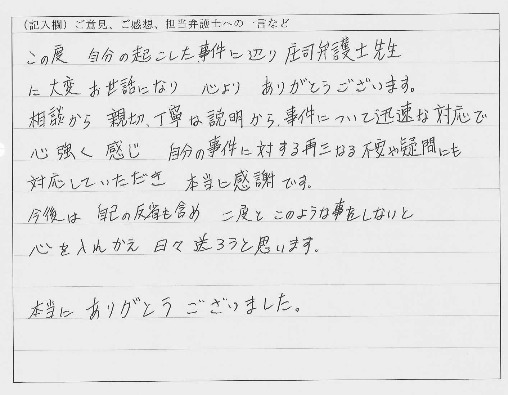 (記入欄)ご意見、ご感想、担当弁護士への一言など
この度 自分の起こした事件に辺り 庄司弁護士先生
に大変 お世話になり 心より ありがとうございます。
相談から 親切、丁寧な説明から、事件について迅速な対応で
心強く 感じ 自分の事件に対する再三なる不安や疑問にも
対応していただき 本当に感謝です。
今後は 自己の反省も含め 二度と このような事をしないと
心を入れかえ 日々 送ろうと思います。
本当に ありがとう ございました。